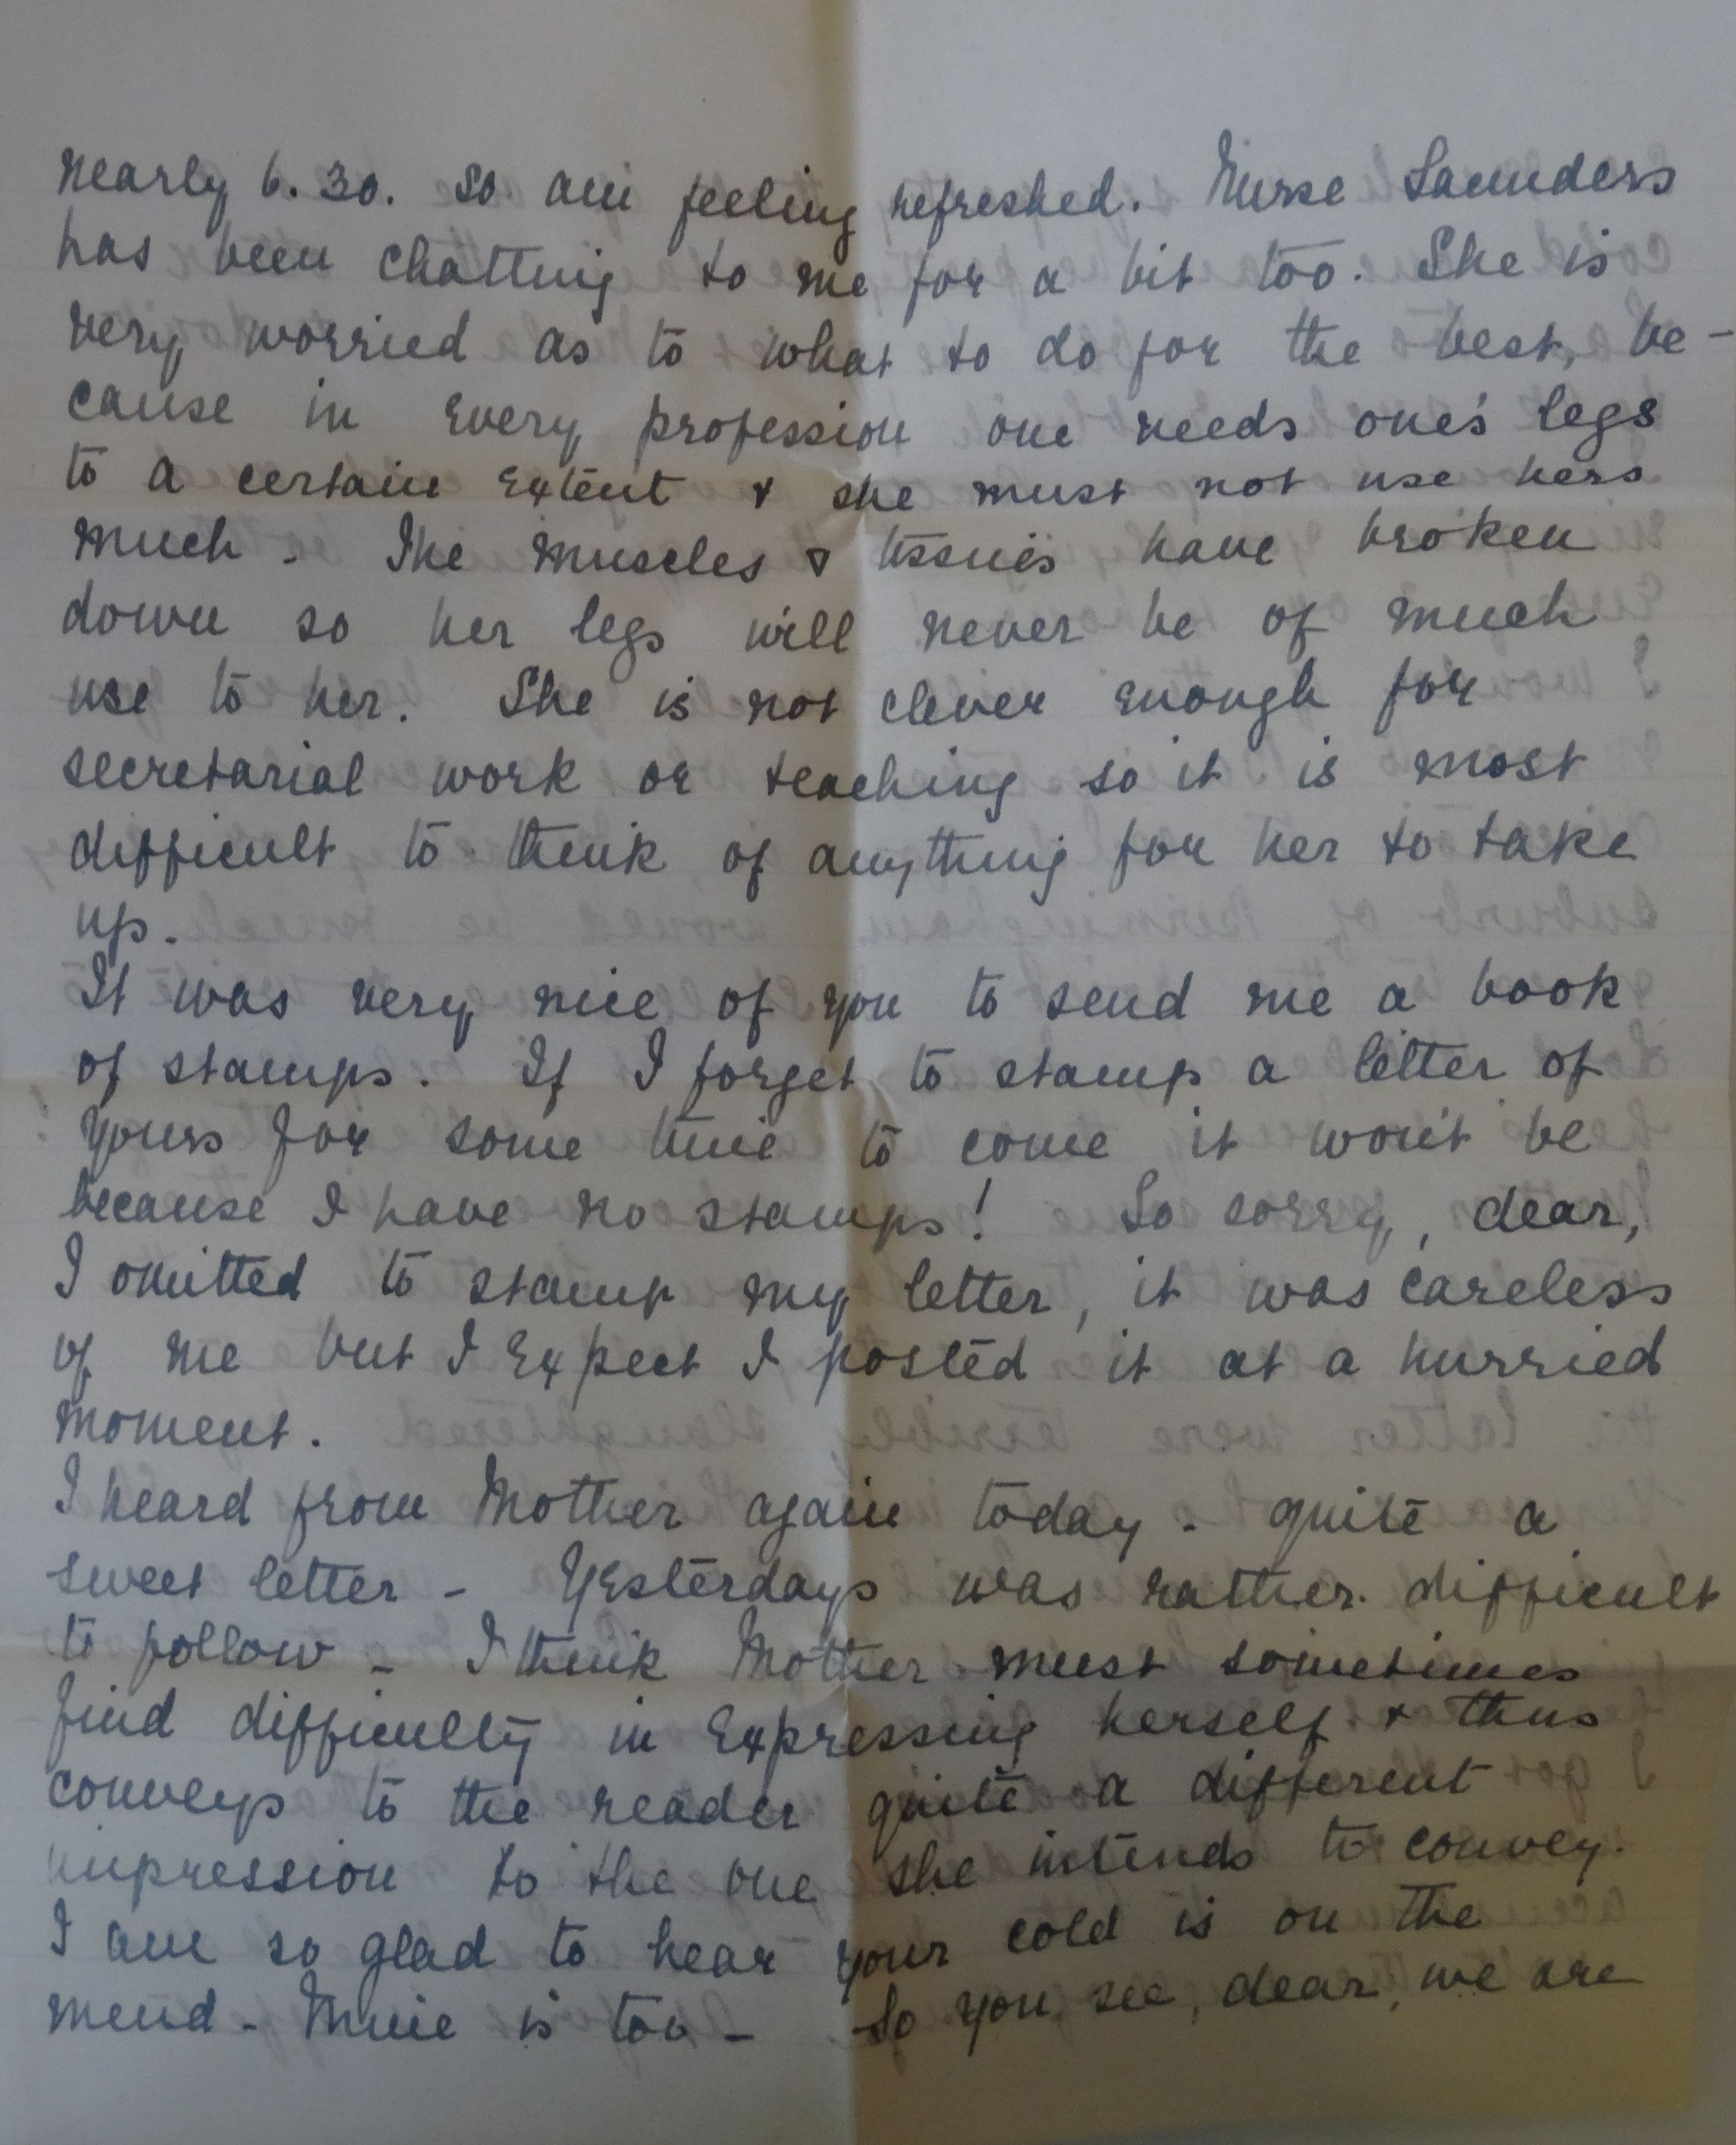 nearly 6.30. So am feeling refreshed. Nurse Saunders
has been chatting to me for a bit too. She is
very worried as to what to do for the best, be-
cause in every profession one needs one's legs
to a certain extent & she must not use hers
much - The muscles & tissues have broken
down so her legs will never be of much
use to her. She is not clever enough for
secretarial work or teaching so it is most
difficult to think of anything for her to take
up.
It was very nice of you to send me a book
of stamps. If I forget to stamp a letter of
yours for some time to come it won't be
because I have no stamps! So sorry, dear,
I omitted to stamp my letter, it was careless
of me but I expect I posted it at a hurried
moment.
I heard from Mother again today - quite a
sweet letter - Yesterdays was rather difficult
to follow - I think Mother must sometimes
find difficulty in expressing herself & thus
conveys to the reader quite a different
impression to the one she intends to convey.
I am so glad to hear your cold is on the
mend - Mine is too - So you see, dear, we are